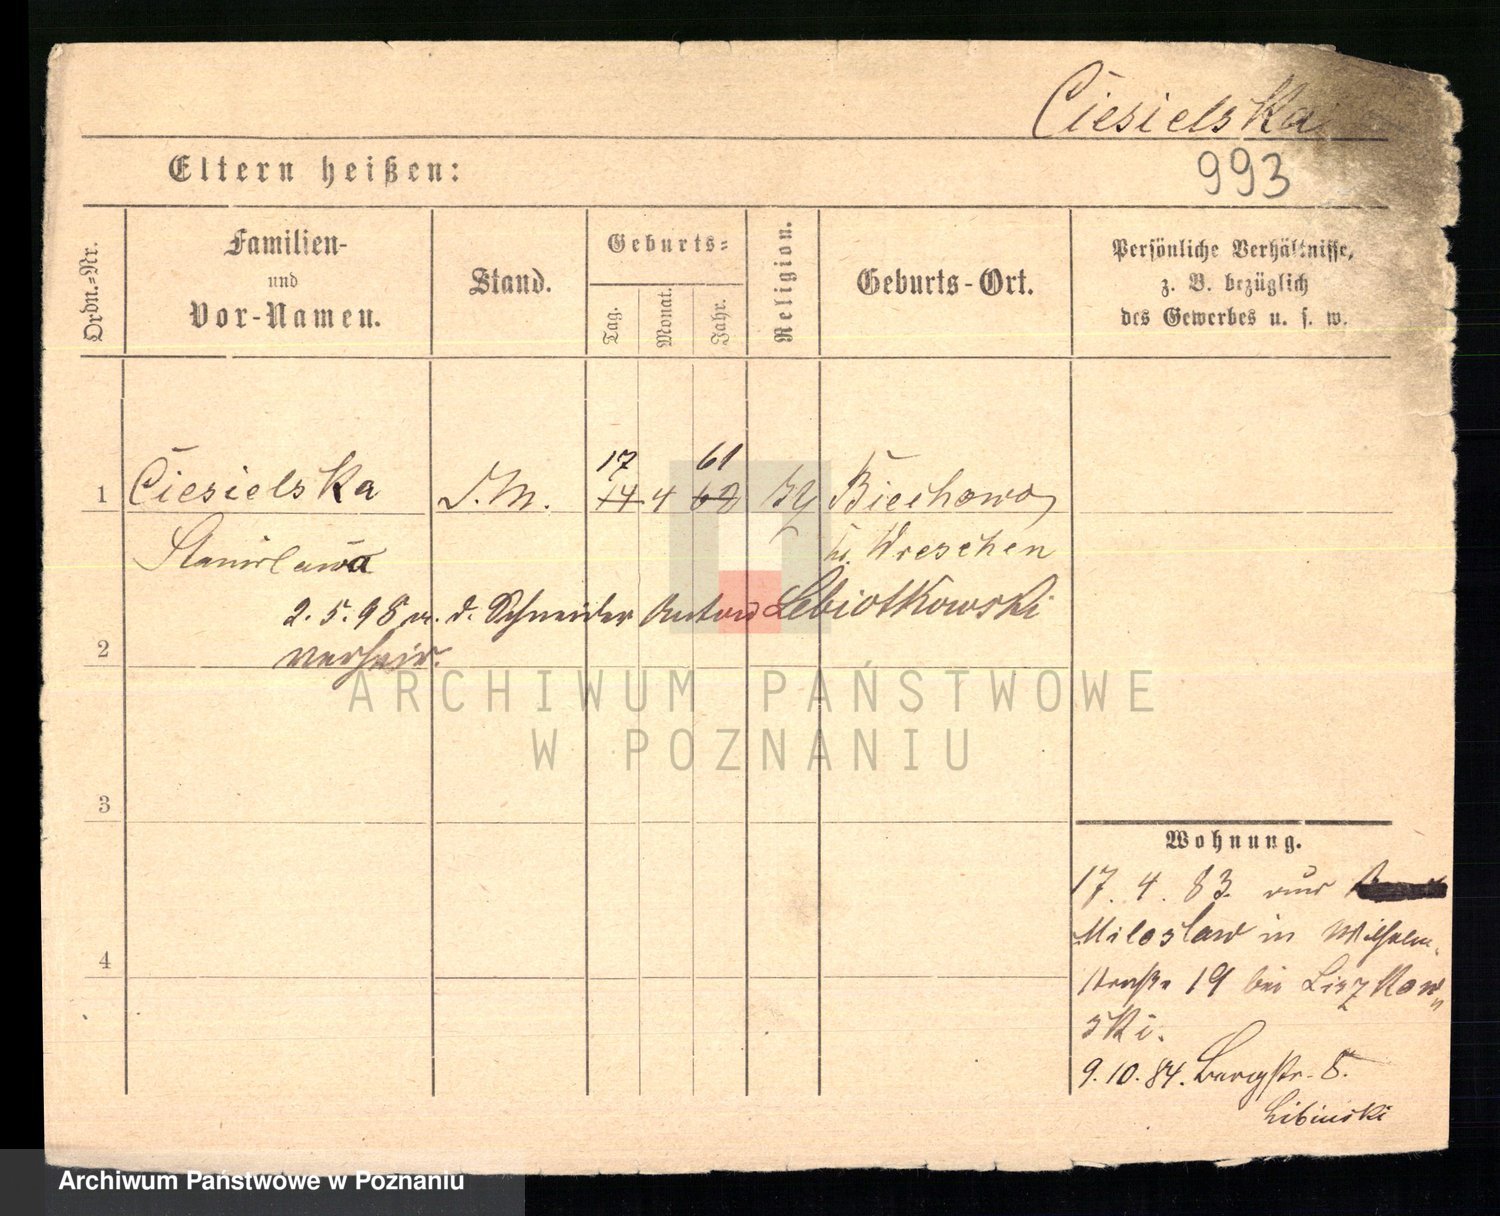 Ciesielska
Eltern heißen:
993
Ordn.-Nr.
Familien-
und
Vor-Namen.
Stand.
Geburts-
Tag.
Monat.
Jahr.
Religion.
Geburts-Ort.
Persönliche Verhältnisse,
z. B. bezüglich
des Gewerbes u. s. w.
17 61
1 Ciesielska D.M. 14 4 62 Biechowo
Stanislawa b. Wreschen
2. 5. 98 m. d. Schneider Anton Lebiotkowski
2 verheir.
3
Wohnung.
17. 4. 83. aus
Miloslaw in Wilhelm-
4
straße 19 bei Liszkow-
ski.
9. 10. 84. Bergstr. 8.
Libinski
ARCHIWUM PAŃSTWOWE
W POZNANIU
Archiwum Państwowe w Poznaniu